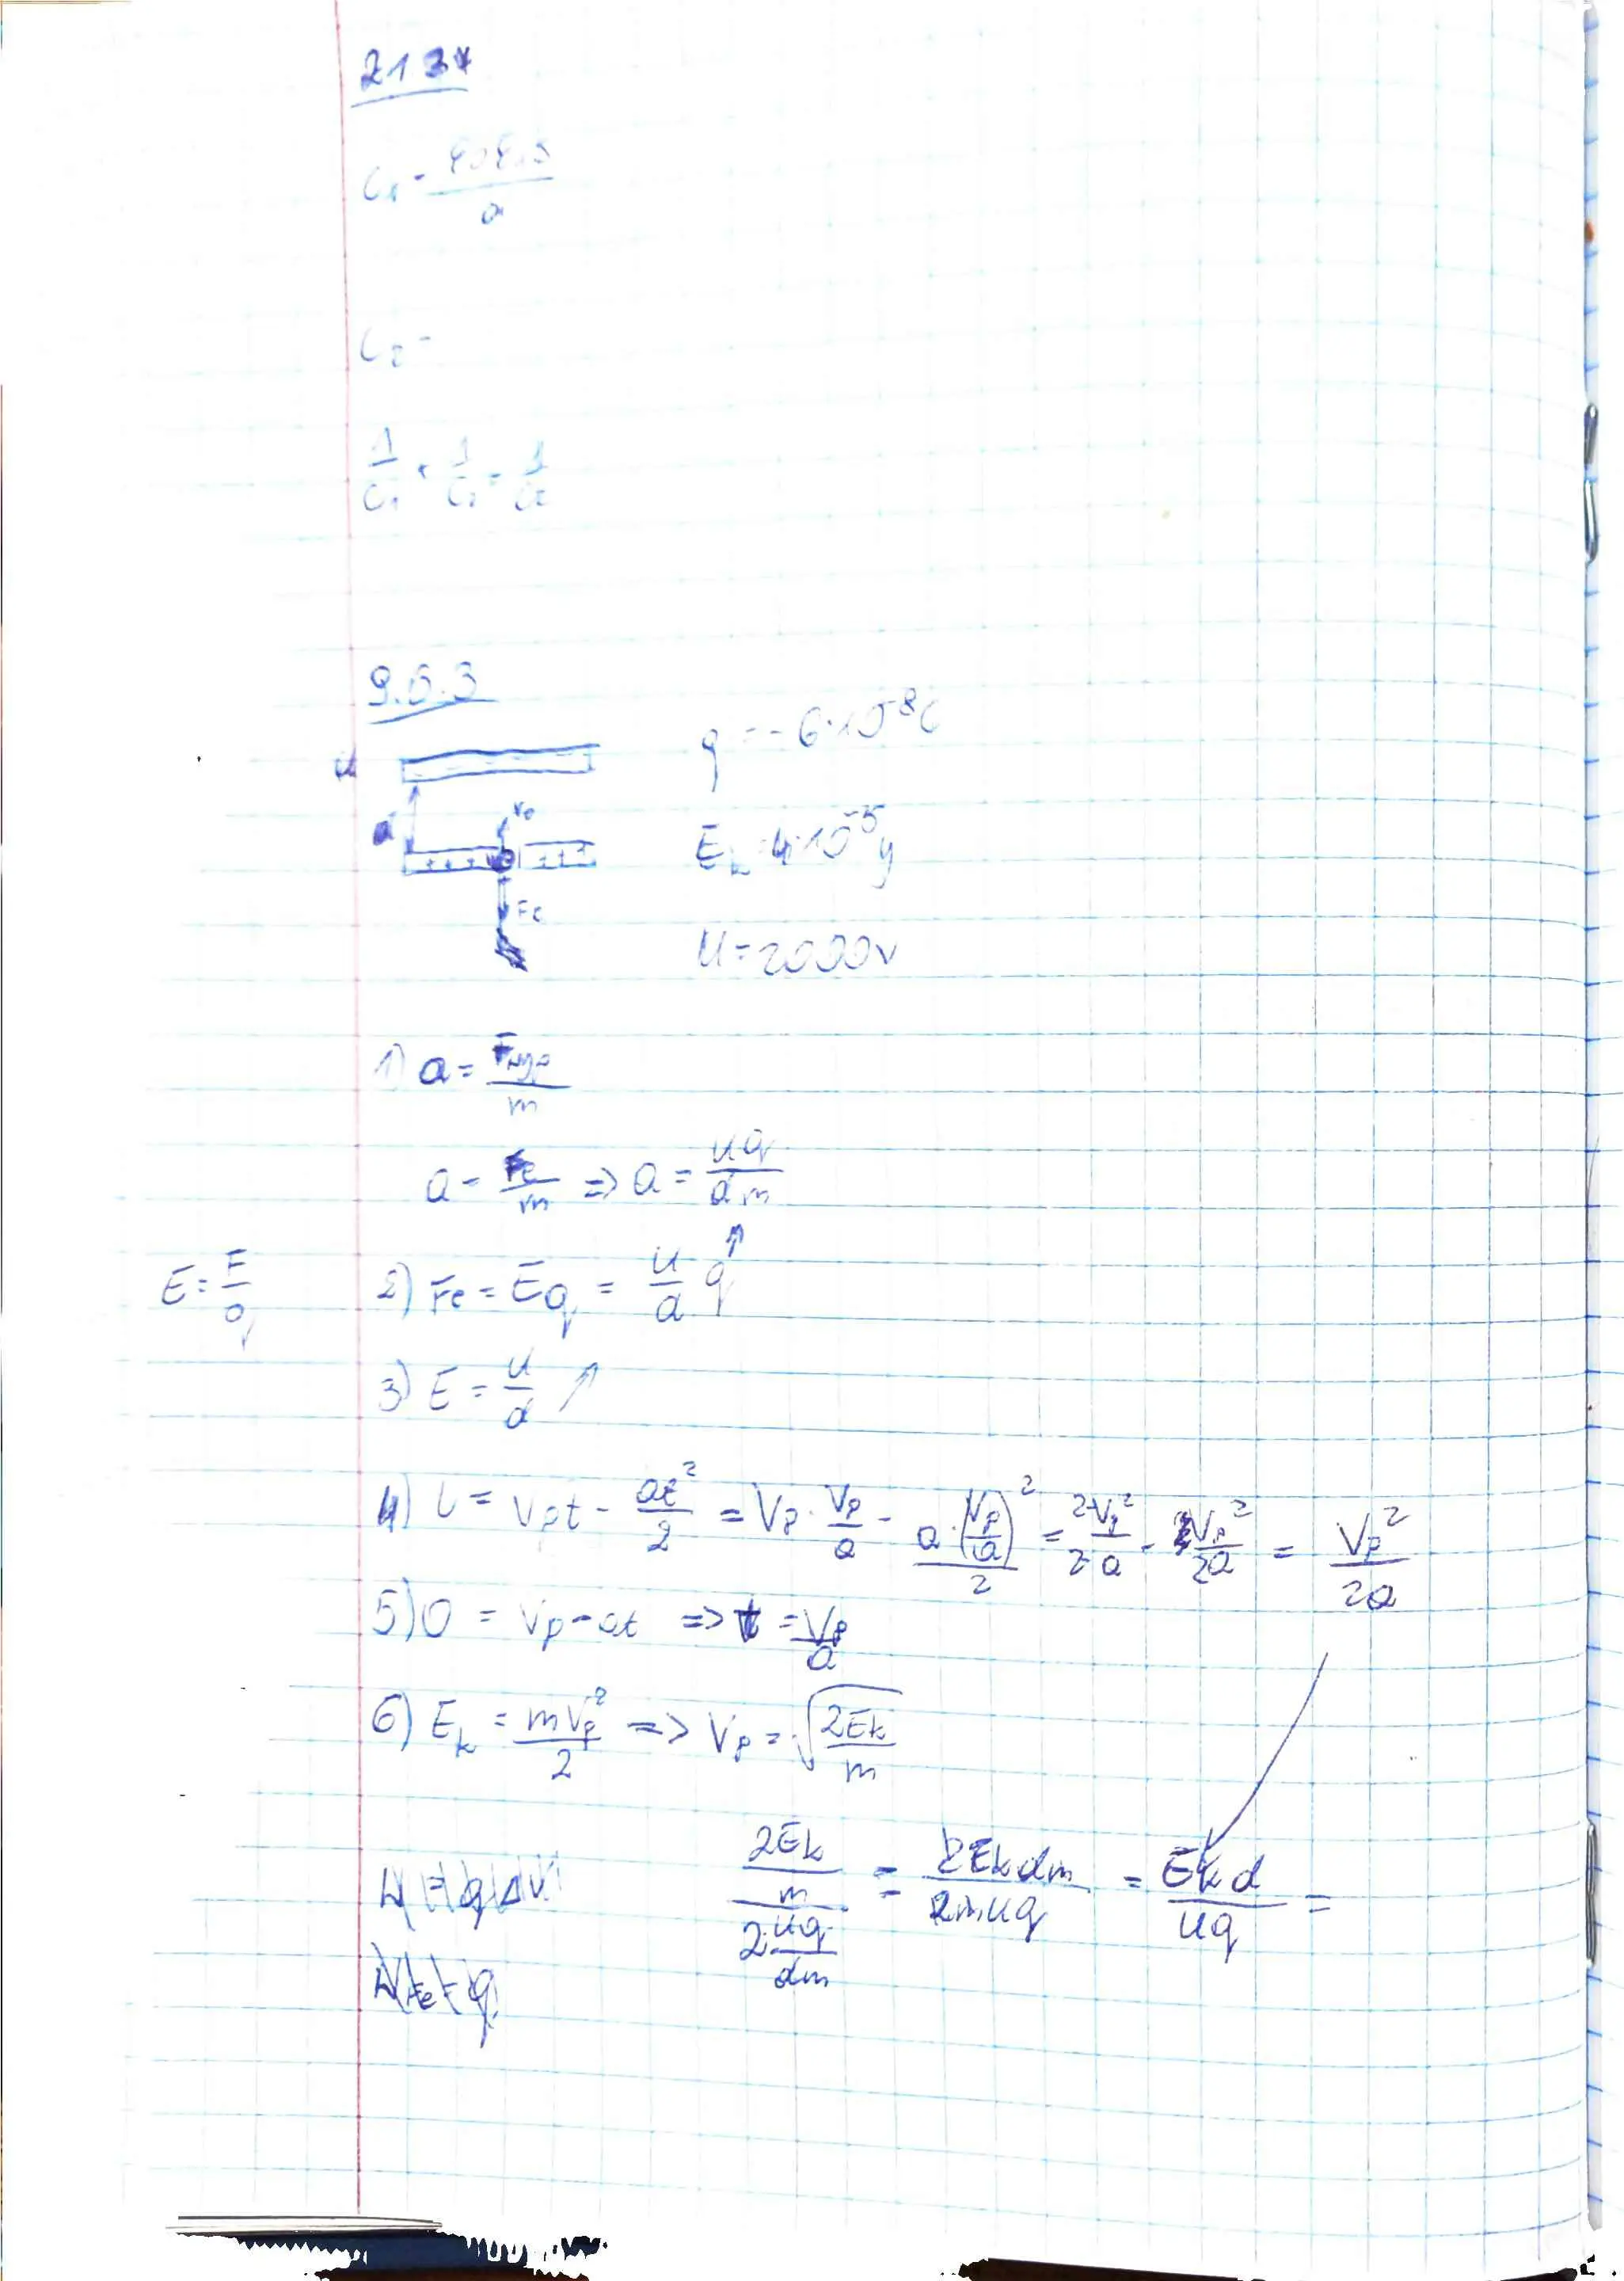 2134
C₁ = ε₀εᵣS / d
C₂ =
1/C₁ + 1/C₂ = 1/Cz
9.6.3
U
d
V₀
Fe
q = -6·10⁻⁸C
Ek = 4·10⁻⁵J
U = 2000V
1) a = Fwyp / m
a = Fe/m => a = Uq / dm
E = F/q
2) Fe = Eq = U/d q
3) E = U/d
4) l = Vpt - at²/2 = Vp · Vp/a - a·(Vp/a)²/2 = 2Vp²/2a - Vp²/2a = Vp²/2a
5) 0 = Vp - at => t = Vp/a
6) Ek = mVp²/2 => Vp = √(2Ek/m)
(2Ek/m) / (2·Uq/dm) = 2Ekdm / 2mUq = Ekd / Uq =